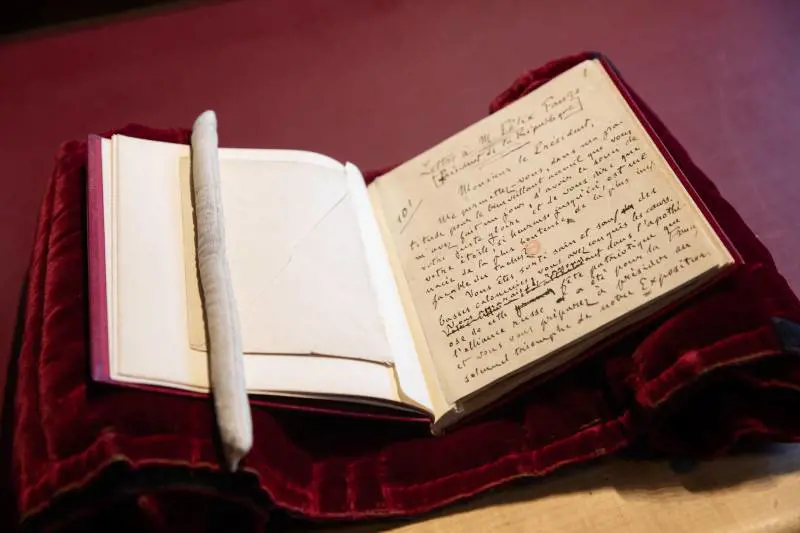 1
Lettre à M. Félix Faure
[Président de la République]
10!
Monsieur le Président,
Me permettez-vous, dans ma gra-
titude pour le bienveillant accueil que vous
m'avez fait un jour, d'avoir le souci de
votre juste gloire et de vous dire que
votre étoile, si heureuse jusqu'ici, est me-
nacée de la plus honteuse, de la plus inef-
façable des taches?
Vous êtes sorti sain et sauf des
basses calomnies, vous avez conquis les cœurs.
Vous apparaissez rayonnant dans l'apothé-
ose de cette fête patriotique que
l'alliance russe a été pour la France
et vous vous préparez à présider au
solennel triomphe de notre Exposition